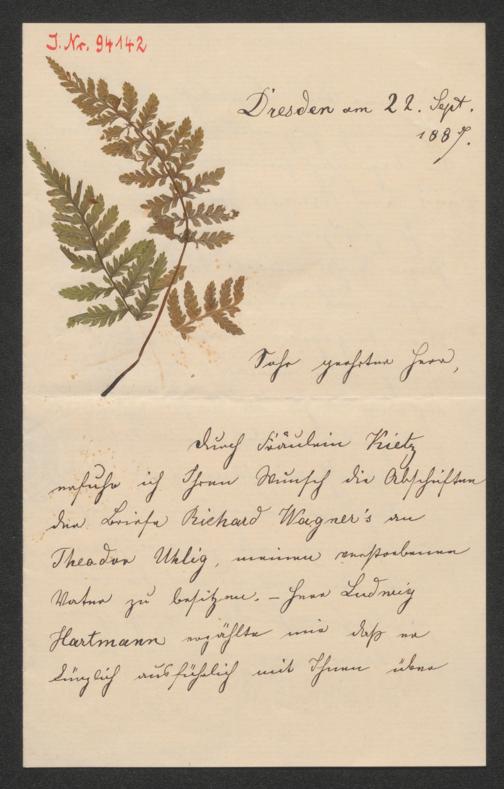 J. Nr. 94142
Dresden am 22. Sept.
1887.
Sehr geehrter Herr,
durch Fräulein Kietz
erfuhr ich Ihren Wunsch die Abschriften
der Briefe Richard Wagner's an
Theodor Uhlig, meinen verstorbenen
Vater zu besitzen. – Herr Ludwig
Hartmann erzählte mir daß er
kürzlich ausführlich mit Ihnen über